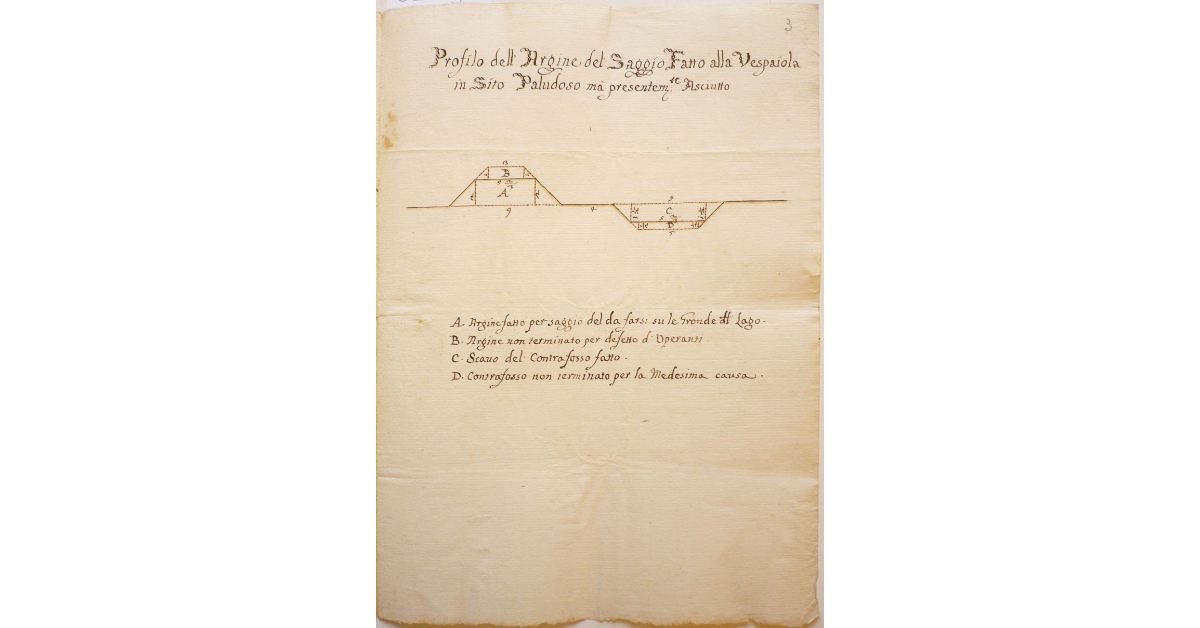 3
Profilo dell' Argine del Saggio Fatto alla Vespaiola
in Sito Paludoso mà presentem.te Asciutto
B
A
9
C
D
5
A. Argine fatto per saggio del da farsi su le Gronde del Lago.
B. Argine non terminato per defetto d' Operanti
C. Scavo del Contrafosso fatto.
D. Contrafosso non terminato per la Medesima causa.